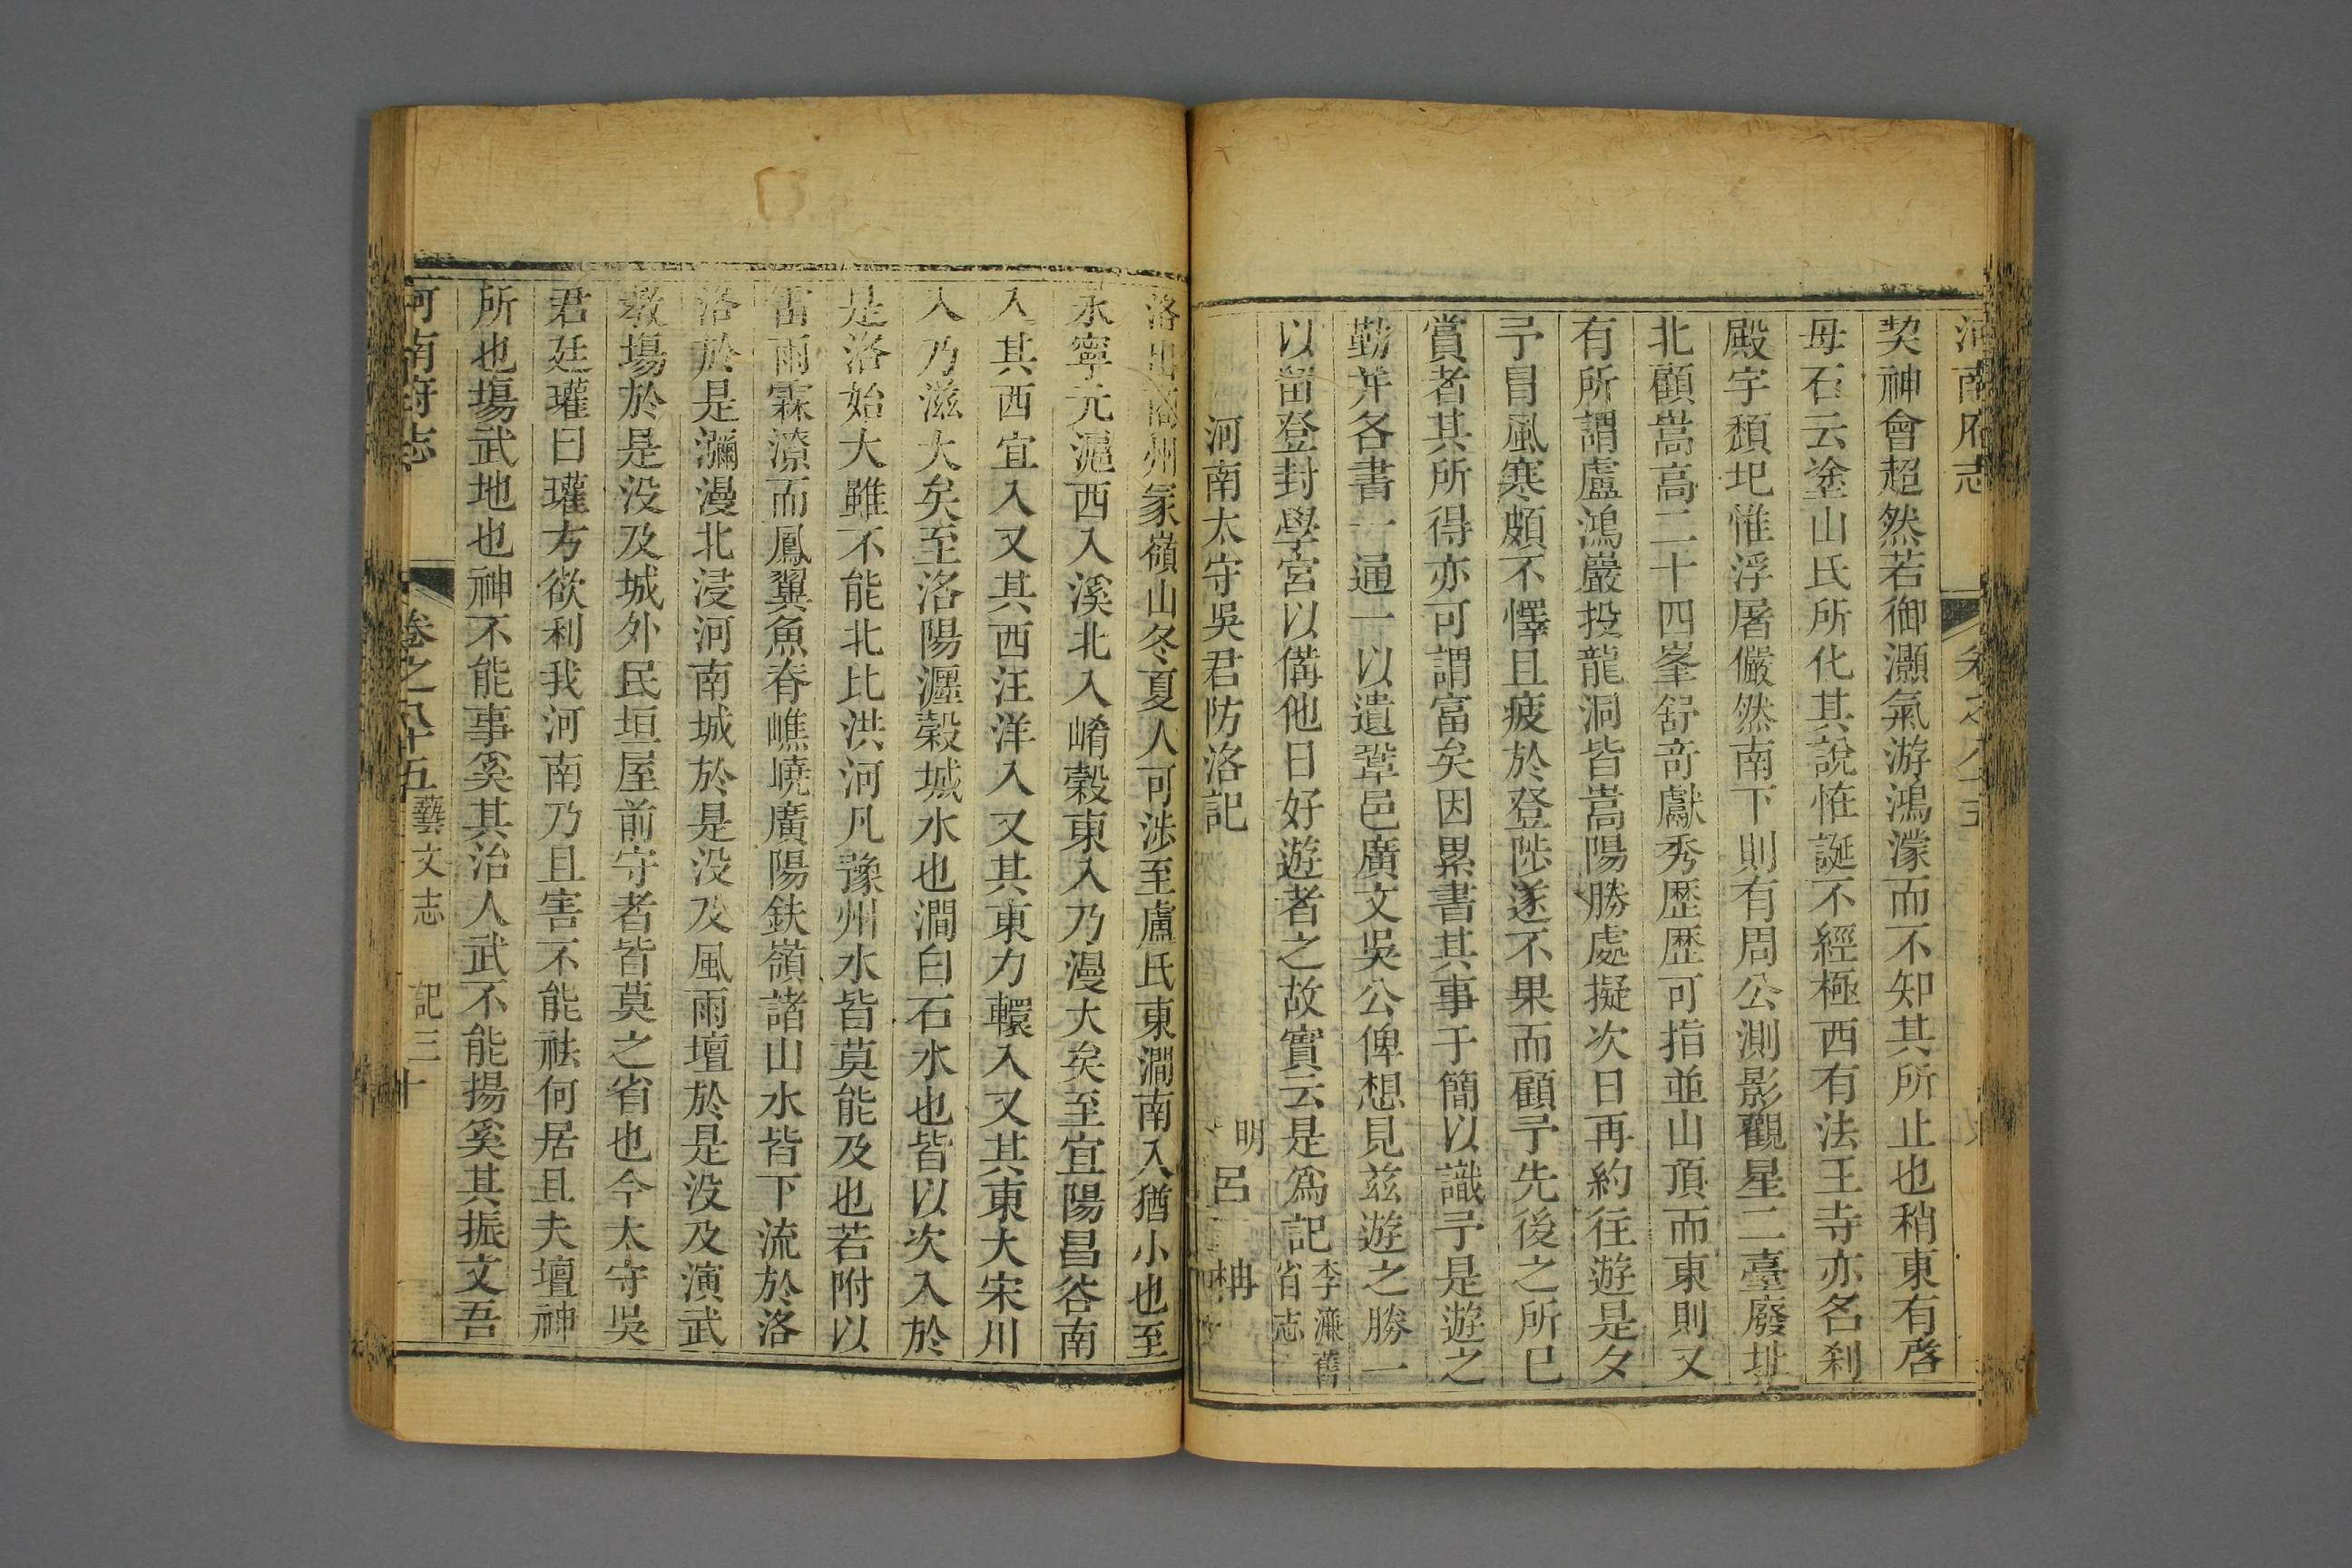 河南府志 卷之八十五
契神會超然若御灝氣游鴻濛而不知其所止也稍東有啓
母石云塗山氏所化其說恠誕不經極西有法王寺亦名刹
殿宇頹圯惟浮屠儼然南下則有周公測影觀星二臺廢址
北顧嵩高二十四峯舒竒獻秀歷歷可指並山頂而東則又
有所謂盧鴻巖投龍洞皆嵩陽勝處擬次日再約往遊是夕
予冐風寒頗不懌且疲於登陟遂不果而顧予先後之所已
賞者其所得亦可謂富矣因累書其事于簡以識予是遊之
勤并各書一通一以遺鞏邑廣文吳公俾想見兹遊之勝一
以留登封學宮以備他日好遊者之故實云是爲記李濂舊省志
河南太守吳君防洛記 明呂柟
洛出商州冢嶺山冬夏人可涉至盧氏東澗南入猶小也至
永寧元滬西入溪北入崤榖東入乃漫大矣至宜陽昌谷南
入其西宜入又其西汪洋入又其東力轘入又其東大宋川
入乃滋大矣至洛陽瀍榖城水也澗白石水也皆以次入於
是洛始大雖不能北比洪河凡豫州水皆莫能及也若附以
雷雨霖潦而鳳翼魚脊嶕嶢廣陽鈇嶺諸山水皆下流於洛
洛於是瀰漫北浸河南城於是没及風雨壇於是没及演武
敎塲於是没及城外民垣屋前守者皆莫之省也今太守吳
君廷瓘曰瓘方欲利我河南乃且害不能祛何居且夫壇神
所也塲武地也神不能事奚其治人武不能揚奚其振文吾
河南府志 卷之八十五 藝文志 記 三十